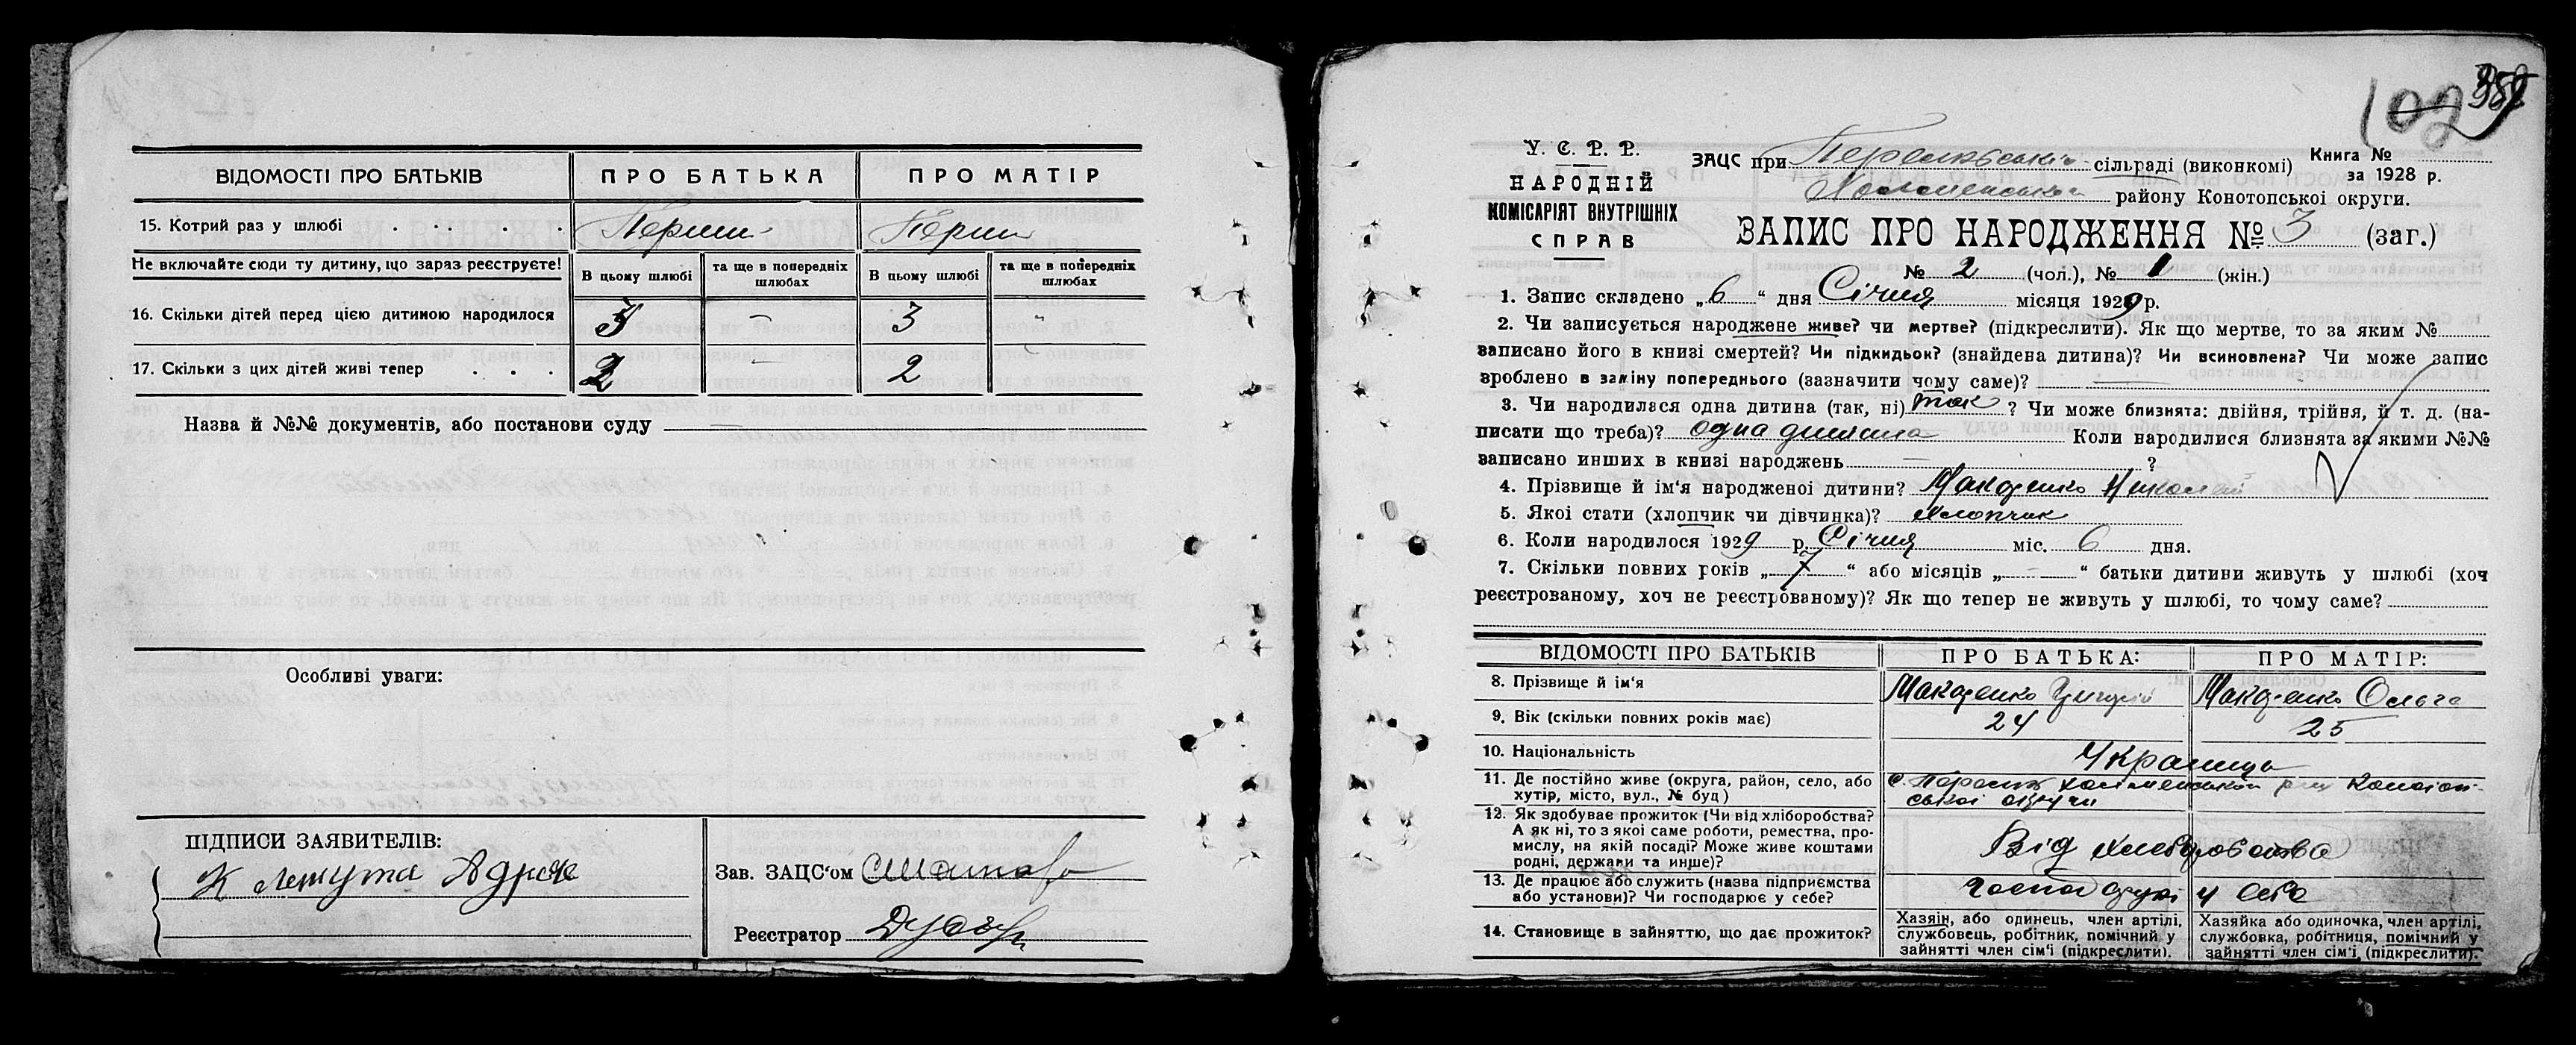 ВІДОМОСТІ ПРО БАТЬКІВ
ПРО БАТЬКА
ПРО МАТІР
15. Котрий раз у шлюбі
Перший
Перши
Не включайте сюди ту дитину, що зараз реєструєте!
В цьому шлюбі
та ще в попередніх шлюбах
В цьому шлюбі
та ще в попередніх шлюбах
16. Скільки дітей перед цією дитиною народилося
3 — 3 "
17. Скільки з цих дітей живі тепер . . .
2 — 2 "
Назва й №№ документів, або постанови суду —
Особливі уваги:
ПІДПИСИ ЗАЯВИТЕЛІВ:
Зав. ЗАЦС'ом
Реєстратор
У. С. Р. Р.
НАРОДНІЙ
КОМІСАРІЯТ ВНУТРІШНІХ
СПРАВ
ЗАЦС при сільраді (виконкомі)
району Конотопської округи.
Книга №
за 1928 р.
ЗАПИС ПРО НАРОДЖЕННЯ № 3 (заг.)
№ 2 (чол.), № 1 (жін.)
1. Запис складено „6" дня Січня місяця 1929 р.
2. Чи записується народжене живе? чи мертве? (підкреслити). Як що мертве, то за яким №
записано його в книзі смертей? Чи підкидьок? (знайдена дитина)? Чи всиновлена? Чи може запис
зроблено в заміну попереднього (зазначити чому саме)? —
3. Чи народилася одна дитина (так, ні) так ? Чи може близнята: двійня, трійня, й т. д. (на-
писати що треба)? одна дитина Коли народилися близнята за якими №№
записано инших в книзі народжень — ?
4. Прізвище й ім'я народженої дитини? Макаренко Николай
5. Якої стати (хлопчик чи дівчинка)? Хлопчик
6. Коли народилося 1929 р. Січня міс. 6 дня.
7. Скільки повних років „7" або місяців „—" батьки дитини живуть у шлюбі (хоч
реєстрованому, хоч не реєстрованому)? Як що тепер не живуть у шлюбі, то чому саме?
ВІДОМОСТІ ПРО БАТЬКІВ
ПРО БАТЬКА:
ПРО МАТІР:
8. Прізвище й ім'я
Макаренко Григорій
Макаренко Ольга
9. Вік (скільки повних років має)
24
25
10. Національність
Українці
11. Де постійно живе (округа, район, село, або
хутір, місто, вул., № буд)
12. Як здобуває прожиток (Чи від хліборобства?
А як ні, то з якої саме роботи, ремества, про-
мислу, на якій посаді? Може живе коштами
родні, держави та инше)?
Від хліборобства
13. Де працює або служить (назва підприємства
або установи)? Чи господарює у себе?
14. Становище в зайняттю, що дає прожиток?
Хазяїн, або одинець, член артілі,
службовець, робітник, помічний у
зайнятті член сім'ї (підкреслити).
Хазяйка або одиночка, член артілі,
службовка, робітниця, помічний у
зайнятті член сім'ї (підкреслити).